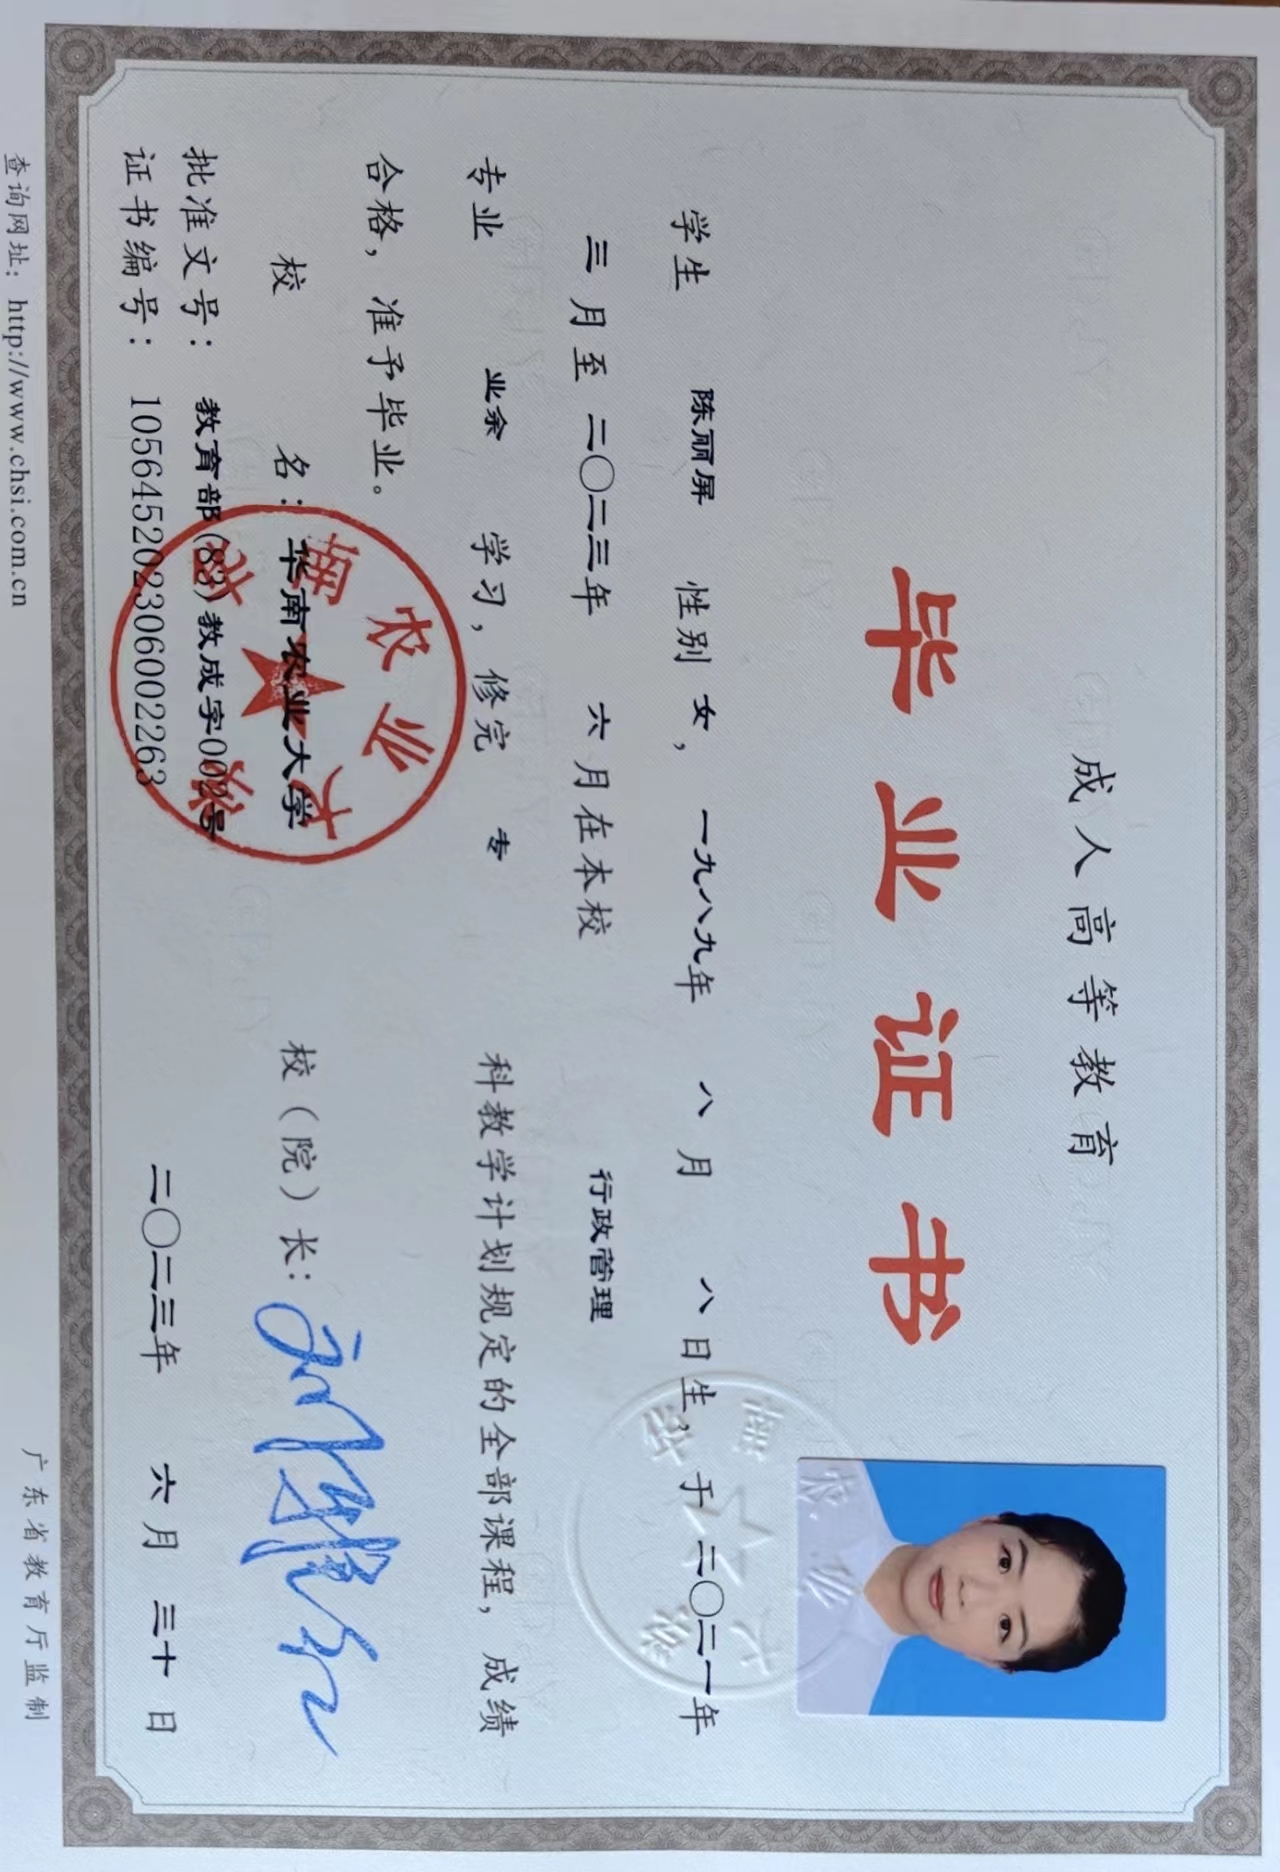 成人高等教育
毕业证书
学生 陈丽屏 性别 女， 一九八九年 八月 八日生，于二〇二一年
三月至二〇二三年 六月在本校 行政管理
专业 业余 学习，修完 专 科教学计划规定的全部课程，成绩
合格，准予毕业。
校 名：华南农业大学 校（院）长：
批准文号：教育部(83)教成字002号
证书编号：105645202306002263 二〇二三年 六月 三十日
查询网址：http://www.chsi.com.cn 广东省教育厅监制
华南农业大学